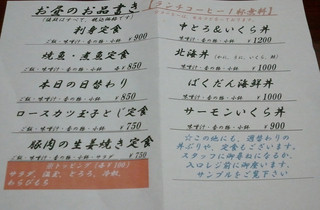 お昼のお品書き
【ランチコーヒー１杯無料】
刺身定食
ご飯・味噌汁・香の物・小鉢 ￥900
焼魚・煮魚定食
ご飯・味噌汁・香の物・小鉢 各￥850
本日の日替わり
ご飯・味噌汁・香の物・小鉢 ￥850
ロースカツ玉子とじ定食
ご飯・味噌汁・香の物・小鉢 ￥750
豚肉の生姜焼き定食
ご飯・味噌汁・香の物・サラダ ￥750
サラダ、温玉、とろろ、冷奴、
めかぶもろ
中とろ＆いくら丼
味噌汁・香の物・小鉢 ￥1200
北海丼
味噌汁・香の物・小鉢 ￥1000
ばくだん海鮮丼
味噌汁・香の物・小鉢 ￥1000
サーモンいくら丼
味噌汁・香の物・小鉢 ￥900
☆この他にも、週替わりの
丼ぶりや、定食もございます。
スタッフに御尋ねになるか、
入口レジ前に御座います、
サンプルをご覧下さい